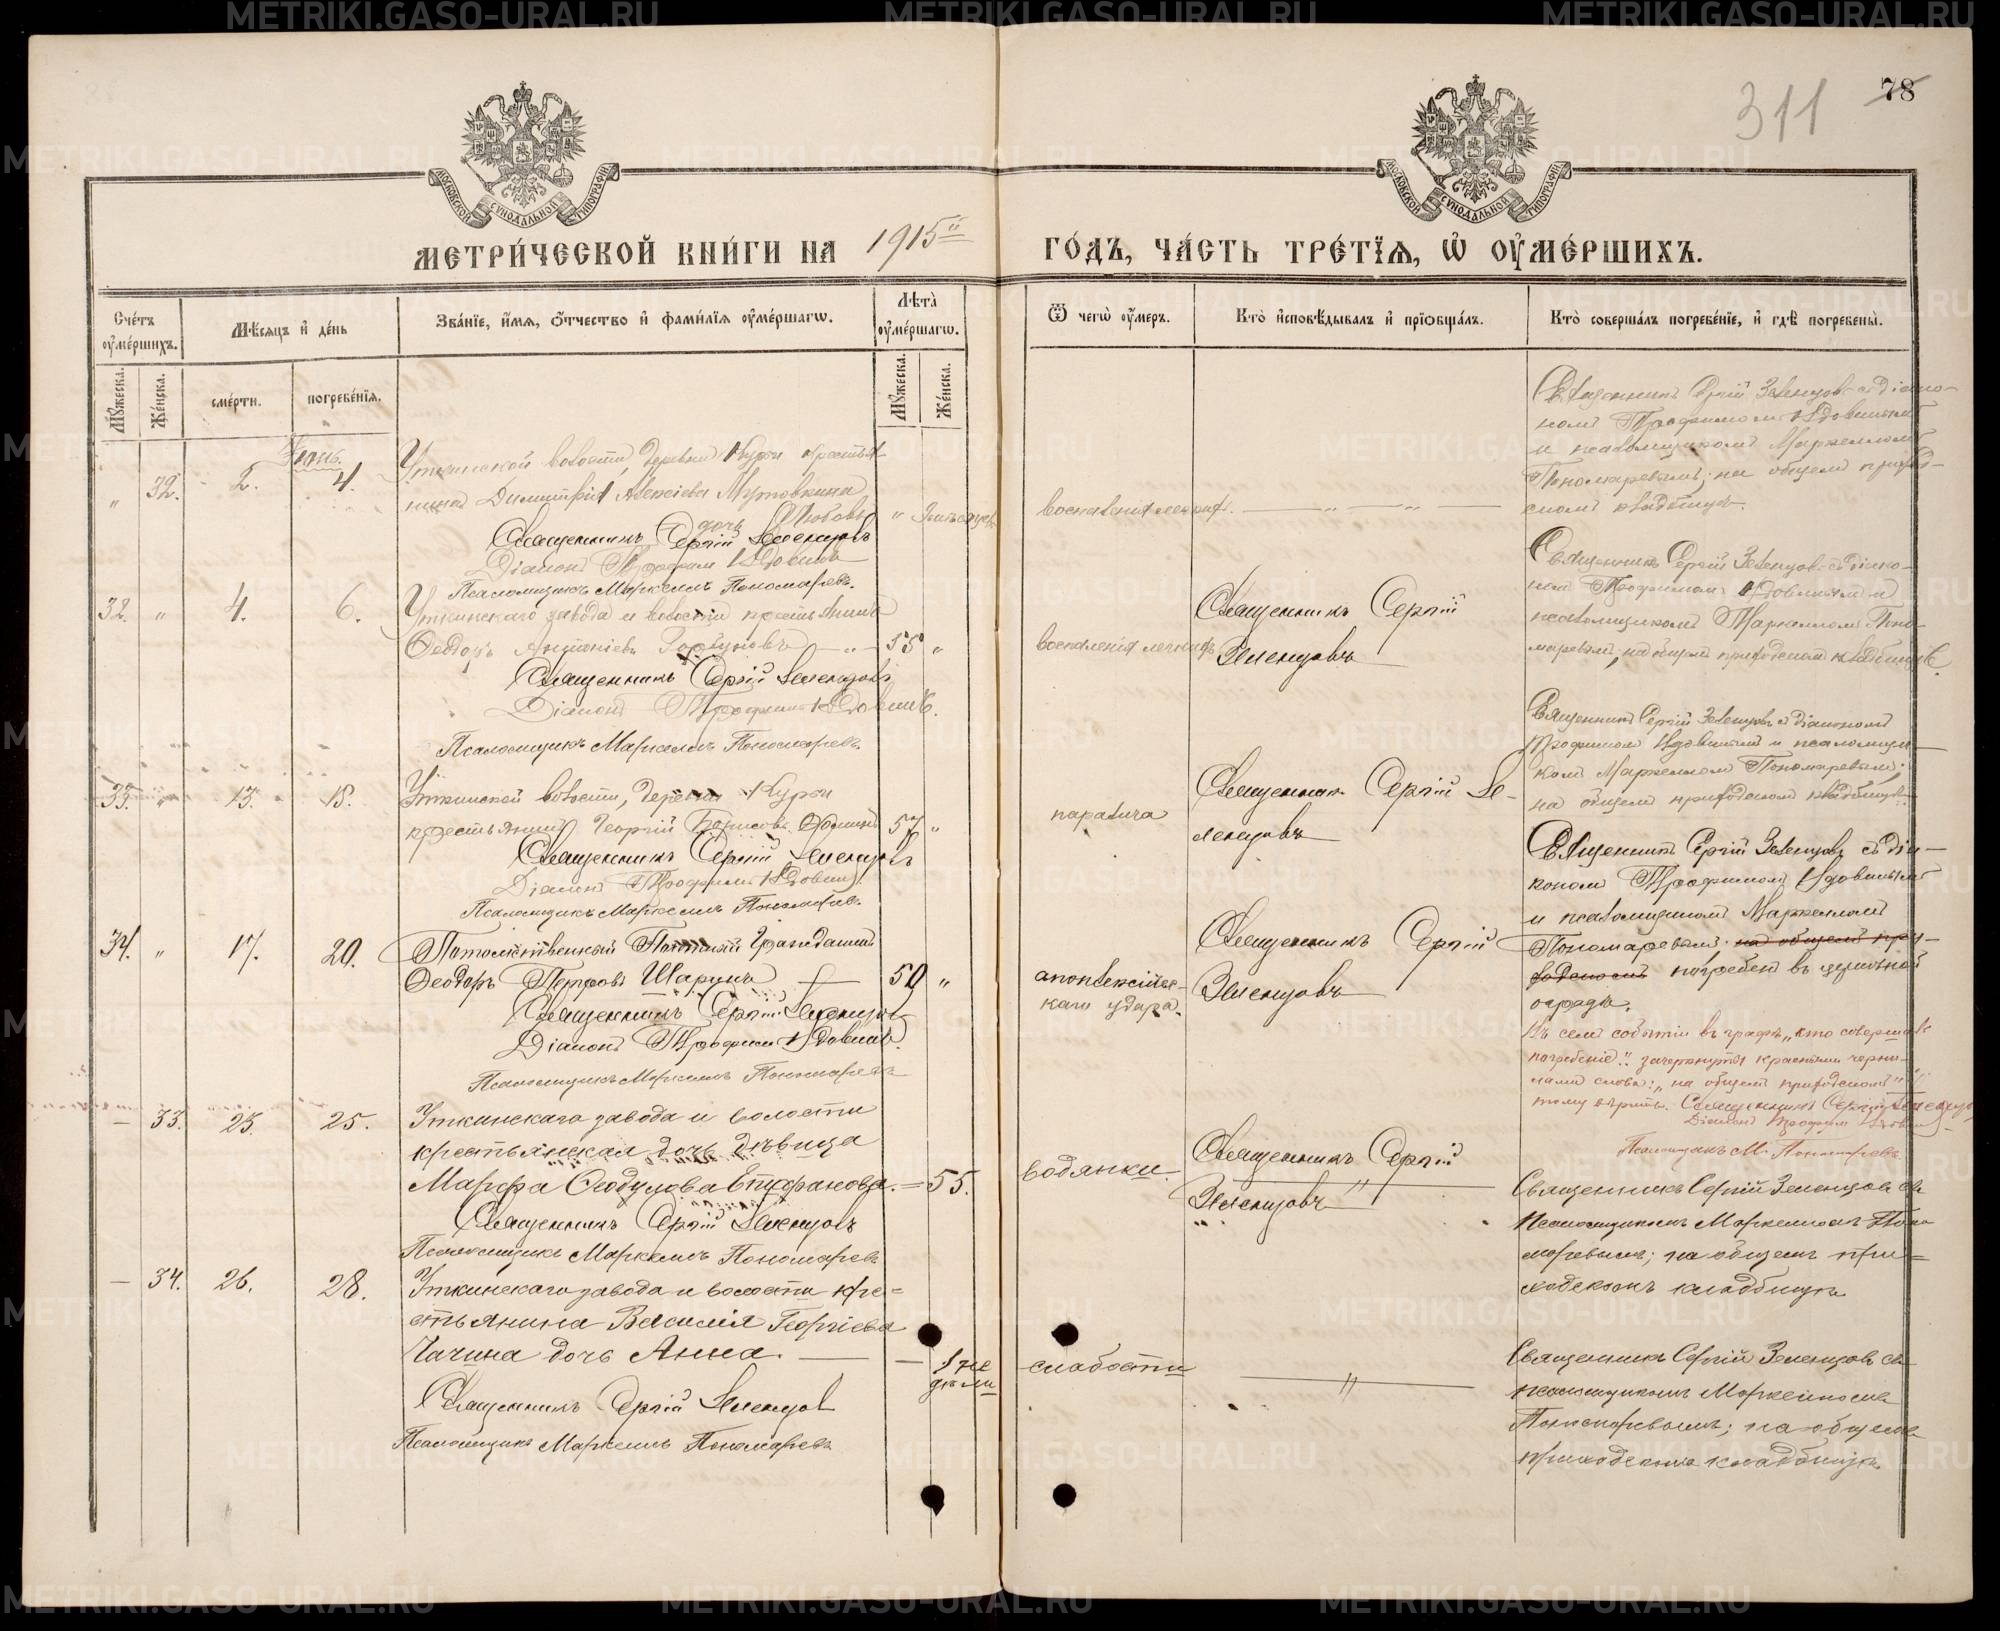 311
78
МОСКОВСКОЙ СѴНОДАЛЬНОЙ ТИПОГРАФІИ
МОСКОВСКОЙ СѴНОДАЛЬНОЙ ТИПОГРАФІИ
МЕТРИ́ЧЕСКОЙ КНИ́ГИ НА 1915й ГО́ДЪ, ЧА́СТЬ ТРЕ́ТЇѦ, Ѡ҆ ОУ҆МЕ́РШИХЪ.
Сче́тъ оу҆ме́ршихъ.
Мѣ́сѧцъ и҆ де́нь
Зва́нїе, и҆́мѧ, ѻ҆́тчество и҆ фами́лїѧ оу҆ме́ршагѡ.
Лѣ́та̀ оу҆ме́ршагѡ.
Ѿ чегѡ̀ оу҆́меръ.
Кто̀ и҆сповѣ́дывалъ и҆ прїѡбща́лъ.
Кто̀ соверша́лъ погребе́нїе, и҆ гдѣ̀ погребены̀.
Мꙋ́жеска.
Же́нска.
сме́рти.
погребе́нїѧ.
Мꙋ́жеска.
Же́нска.
" 32. 2. 4.
Уткинской волости, деревни Курьи крестья-
нина Димитрія Алексіева Мутовкина
дочь Любовь "
Священникъ Сергій Зеленцовъ
Діаконъ Трофимъ Вдовинъ
Псаломщикъ Маркеллъ Пономаревъ.
воспаленія легкихъ. — " — " —
Священникъ Сергій Зеленцовъ съ діако-
номъ Трофимомъ Вдовинымъ
и псаломщикомъ Маркелломъ
Пономаревымъ; на общемъ приход-
скомъ кладбищѣ.
32. " 4. 6.
Уткинскаго завода и волости крестьянинъ
Ѳеодоръ Антоніевъ Горбуновъ — " — 55 "
Священникъ Сергій Зеленцовъ
Діаконъ Трофимъ Вдовинъ.
Псаломщикъ Маркеллъ Пономаревъ
воспаленія легкихъ
Священникъ Сергій
Зеленцовъ
Священникъ Сергій Зеленцовъ съ діако-
номъ Трофимомъ Вдовинымъ и
псаломщикомъ Маркелломъ Поно-
маревымъ; на общемъ приходскомъ кладбищѣ.
33. " 13. 15.
Уткинской волости, деревни Курьи
крестьянинъ Георгій Борисовъ 57 "
Священникъ Сергій Зеленцовъ
Діаконъ Трофимъ Вдовинъ
Псаломщикъ Маркеллъ Пономаревъ.
паралича
Священникъ Сергій Зе-
ленцовъ
Священникъ Сергій Зеленцовъ съ діакономъ
Трофимомъ Вдовинымъ и псаломщи-
комъ Маркелломъ Пономаревымъ;
на общемъ приходскомъ кладбищѣ.
34. " 17. 20.
Потомственный Почетный Гражданинъ
Ѳеодоръ Петровъ Шарунъ — 50 "
Священникъ Сергій Зеленцовъ
Діаконъ Трофимъ Вдовинъ.
Псаломщикъ Маркеллъ Пономаревъ
апоплексичес-
каго удара.
Священникъ Сергій
Зеленцовъ
Священникъ Сергій Зеленцовъ съ діа-
кономъ Трофимомъ Вдовинымъ
и псаломщикомъ Маркелломъ
Пономаревымъ; на общемъ при-
ходскомъ погребен въ церковной
оградѣ.
Въ семъ событіи въ графѣ „кто совершалъ
погребеніе": зачеркнутыя красными черни-
лами слова: „на общемъ приходскомъ"
тому вѣрить. Священникъ Сергій Зеленцовъ
Діаконъ Трофимъ Вдовинъ
Псаломщикъ М. Пономаревъ.
— 33. 23. 25.
Уткинскаго завода и волости
крестьянская дочь дѣвица
Марѳа Ѳеодулова Епифанова. — 55.
Священникъ Сергій Зеленцовъ
Псаломщикъ Маркеллъ Пономаревъ
водянки.
Священникъ Сергій
Зеленцовъ
Священникъ Сергій Зеленцовъ съ
псаломщикомъ Маркелломъ Поно-
маревымъ; на общемъ при-
ходскомъ кладбищѣ
— 34. 26. 28.
Уткинскаго завода и волости кре-
стьянина Василія Георгіева
Чачина дочь Анна. — — 1 не
дѣли
Священникъ Сергій Зеленцовъ
Псаломщикъ Маркеллъ Пономаревъ
слабости
— " —
Священникъ Сергій Зеленцовъ съ
псаломщикомъ Маркелломъ
Пономаревымъ; на общемъ
приходскомъ кладбищѣ.
METRIKI.GASO-URAL.RU